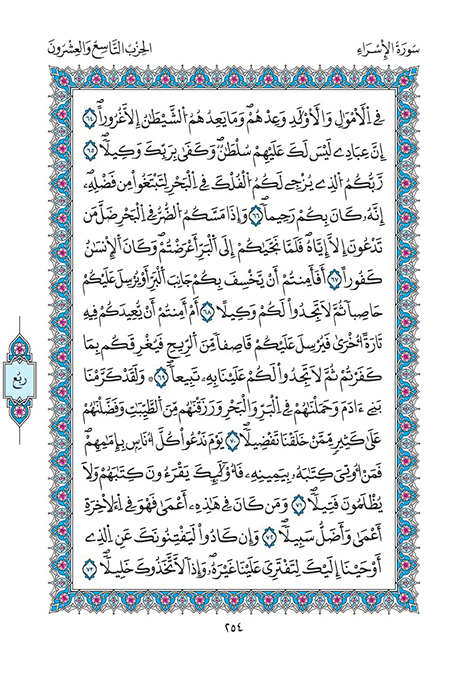 سُورَةُ الإِسْرَاءِ
الحِزْبُ التَّاسِعُ وَالعِشْرُونَ
فِي الْأَمْوَٰلِ وَالْأَوْلَٰدِ وَعِدْهُمْ وَمَا يَعِدُهُمُ الشَّيْطَٰنُ إِلَّا غُرُوراً ٦٤
إِنَّ عِبَادِي لَيْسَ لَكَ عَلَيْهِمْ سُلْطَٰنٌ وَكَفَىٰ بِرَبِّكَ وَكِيلًا ٦٥
رَّبُّكُمُ الَّذِي يُزْجِي لَكُمُ الْفُلْكَ فِي الْبَحْرِ لِتَبْتَغُوا مِن فَضْلِهِ
إِنَّهُ كَانَ بِكُمْ رَحِيماً ٦٦ وَإِذَا مَسَّكُمُ الضُّرُّ فِي الْبَحْرِ ضَلَّ مَن
تَدْعُونَ إِلَّا إِيَّاهُ فَلَمَّا نَجَّيٰكُمْ إِلَى الْبَرِّ أَعْرَضْتُمْ وَكَانَ الْإِنسَٰنُ
كَفُوراً ٦٧ أَفَأَمِنتُمْ أَنْ يَّخْسِفَ بِكُمْ جَانِبَ الْبَرِّ أَوْ يُرْسِلَ عَلَيْكُمْ
حَاصِباً ثُمَّ لَا تَجِدُوا لَكُمْ وَكِيلًا ٦٨ أَمْ أَمِنتُمْ أَنْ يُّعِيدَكُمْ فِيهِ
تَارَةً أُخْرَىٰ فَيُرْسِلَ عَلَيْكُمْ قَاصِفاً مِّنَ الرِّيحِ فَيُغْرِقَكُم بِمَا
كَفَرْتُمْ ثُمَّ لَا تَجِدُوا لَكُمْ عَلَيْنَا بِهِ تَبِيعاً ٦٩ وَلَقَدْ كَرَّمْنَا
بَنِي ءَادَمَ وَحَمَلْنَٰهُمْ فِي الْبَرِّ وَالْبَحْرِ وَرَزَقْنَٰهُم مِّنَ الطَّيِّبَٰتِ وَفَضَّلْنَٰهُمْ
عَلَىٰ كَثِيرٍ مِّمَّنْ خَلَقْنَا تَفْضِيلًا ٧٠ يَوْمَ نَدْعُوا كُلَّ أُنَاسٍ بِإِمَٰمِهِمْ
فَمَنْ أُوتِيَ كِتَٰبَهُ بِيَمِينِهِ فَأُوْلَٰئِكَ يَقْرَءُونَ كِتَٰبَهُمْ وَلَا
يُظْلَمُونَ فَتِيلًا ٧١ وَمَن كَانَ فِي هَٰذِهِ أَعْمَىٰ فَهُوَ فِي الْأَخِرَةِ
أَعْمَىٰ وَأَضَلُّ سَبِيلًا ٧٢ وَإِن كَادُوا لَيَفْتِنُونَكَ عَنِ الَّذِي
أَوْحَيْنَا إِلَيْكَ لِتَفْتَرِيَ عَلَيْنَا غَيْرَهُ وَإِذاً لَّاتَّخَذُوكَ خَلِيلًا ٧٣
ربع
٢٥٤